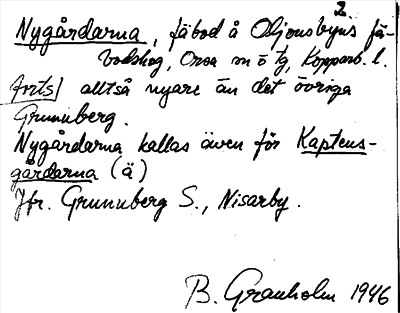 2
Nygårdarna, fäbod å Oljonsbyns fä-
bodskog, Orsa sn o tg, Kopparb. l.
forts/ alltså nyare än det övriga
Grunuberg.
Nygårdarna kallas även för Kaptens-
gårdarna (ä)
Jfr. Grunuberg S., Nisarby.
B. Granholm 1946